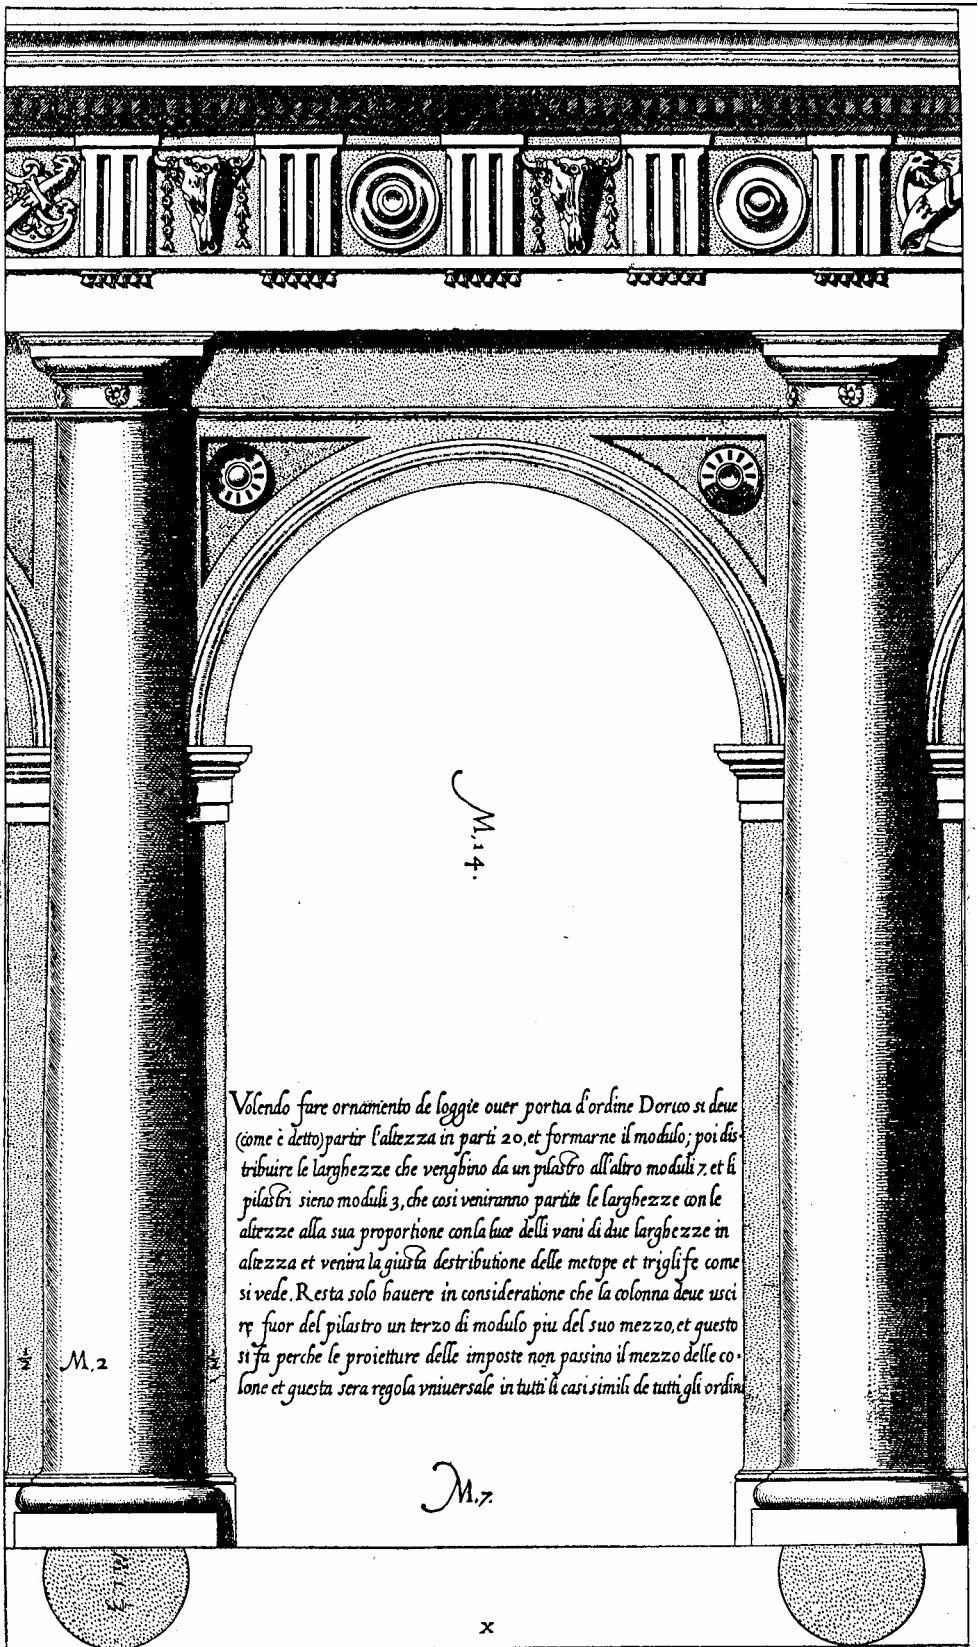 M. 14.
Volendo fare ornamento de loggie ouer portici d'ordine Dorico si deue
(come è detto) partir l'altezza in parti 20, et formarne il modulo; poi dis-
tribuire le larghezze che venghino da un pilastro all'altro moduli 7. et li
pilastri sieno moduli 3, che cosi veniranno partite le larghezze con le
altezze alla sua proportione con la luce delli vani di due larghezze in
altezza et venira la giusta destributione delle metope et triglife come
si vede. Resta solo hauere in consideratione che la colonna deue usci
re fuor del pilastro un terzo di modulo piu del suo mezzo, et questo
si fa perche le proietture delle imposte non passino il mezzo delle co-
lone et questa sera regola vniuersale in tutti li casi simili de tutti gli ordini
½ M. 2 ½
M. 7.
X